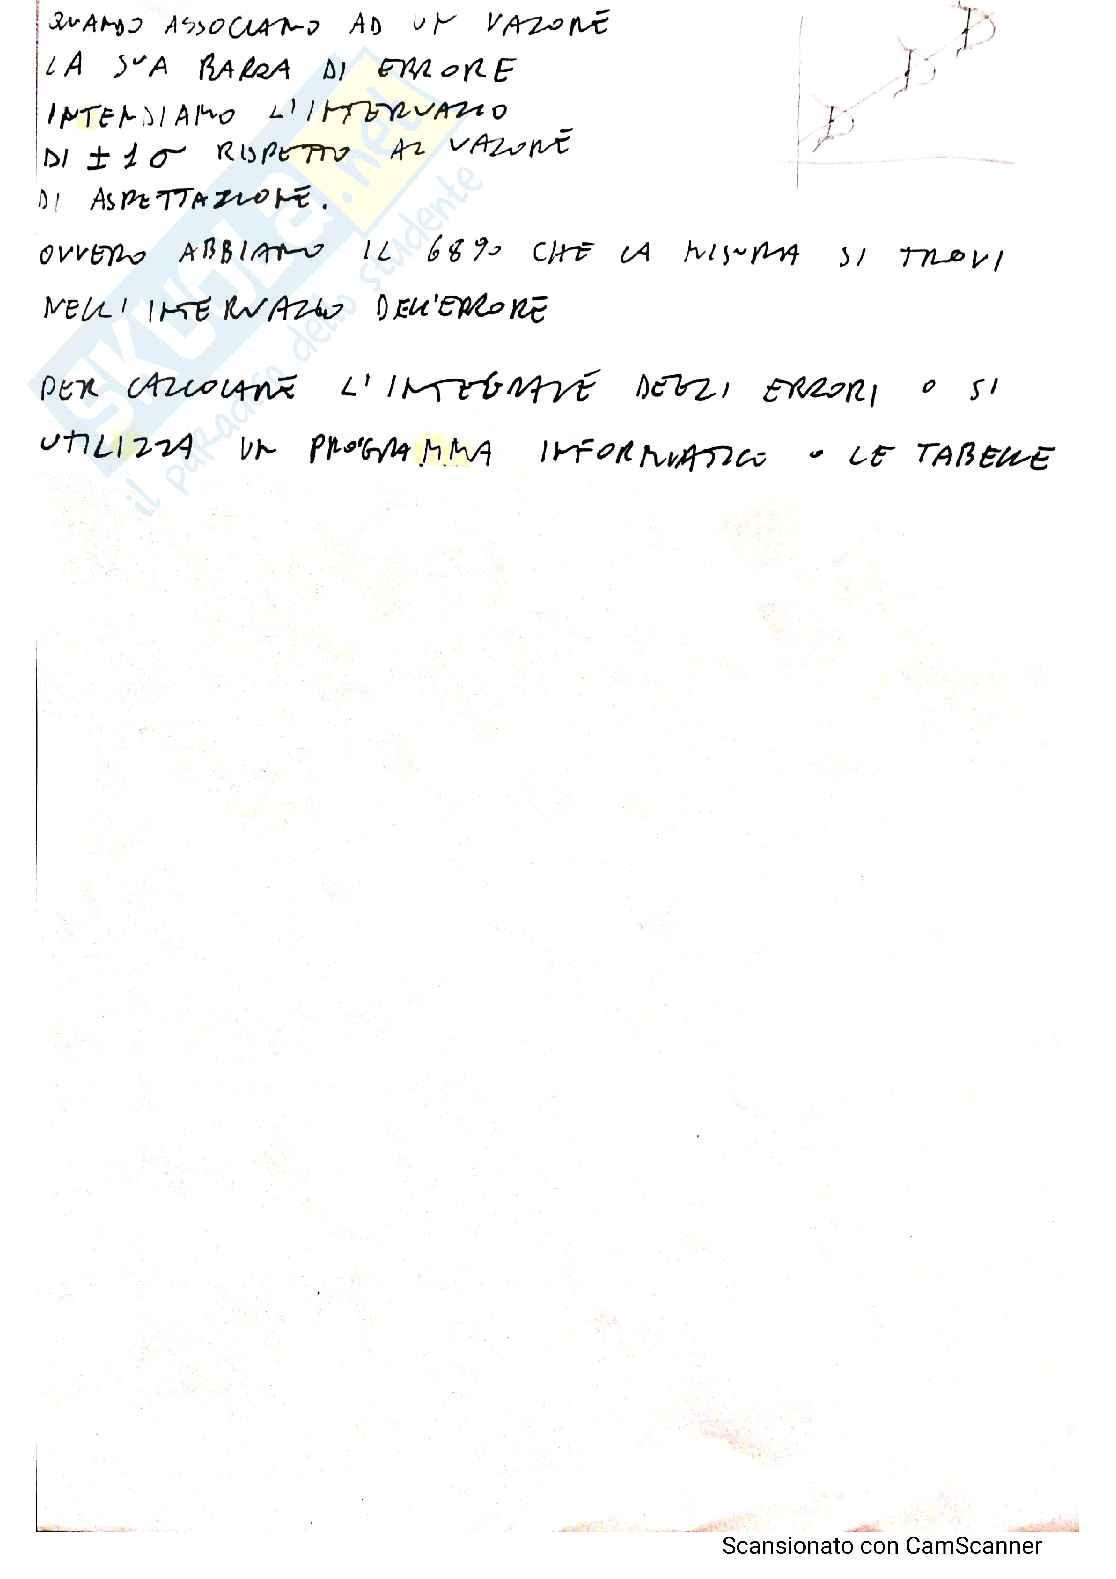 QUANDO ASSOCIAMO AD UN VALORE
LA SUA BARRA DI ERRORE
INTENDIAMO L'INTERVALLO
DI ± 1 σ RISPETTO AL VALORE
DI ASPETTAZIONE.
OVVERO ABBIAMO IL 68% CHE LA MISURA SI TROVI
NELL'INTERVALLO DELL'ERRORE
PER CALCOLARE L'INTEGRALE DEGLI ERRORI O SI
UTILIZZA UN PROGRAMMA INFORMATICO O LE TABELLE
SKUOLA.net
il paradiso dello studente
Scansionato con CamScanner